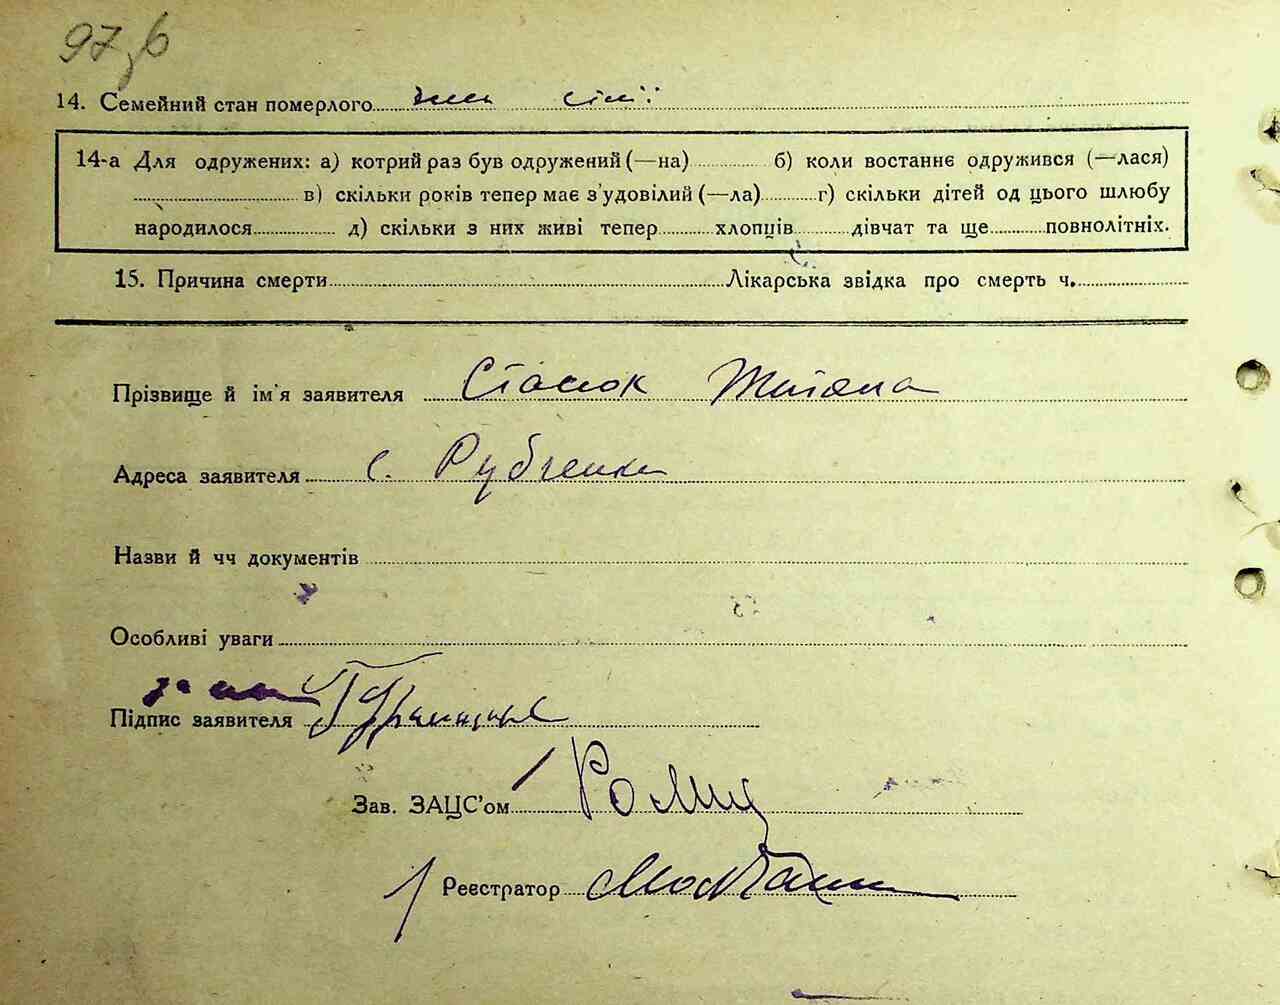 97зв
14. Семейний стан померлого член сімї
14-а Для одружених: а) котрий раз був одружений (—на) б) коли востаннє одружився (—лася)
в) скільки років тепер має з'удовілий (—ла) г) скільки дітей од цього шлюбу
народилося д) скільки з них живі тепер хлопців дівчат та ще повнолітніх.
15. Причина смерти Лікарська звідка про смерть ч.
Прізвище й ім'я заявителя Стасюк
Адреса заявителя с. Рубченки
Назви й чч документів
Особливі уваги
Підпис заявителя
Зав. ЗАЦС'ом
Реєстратор